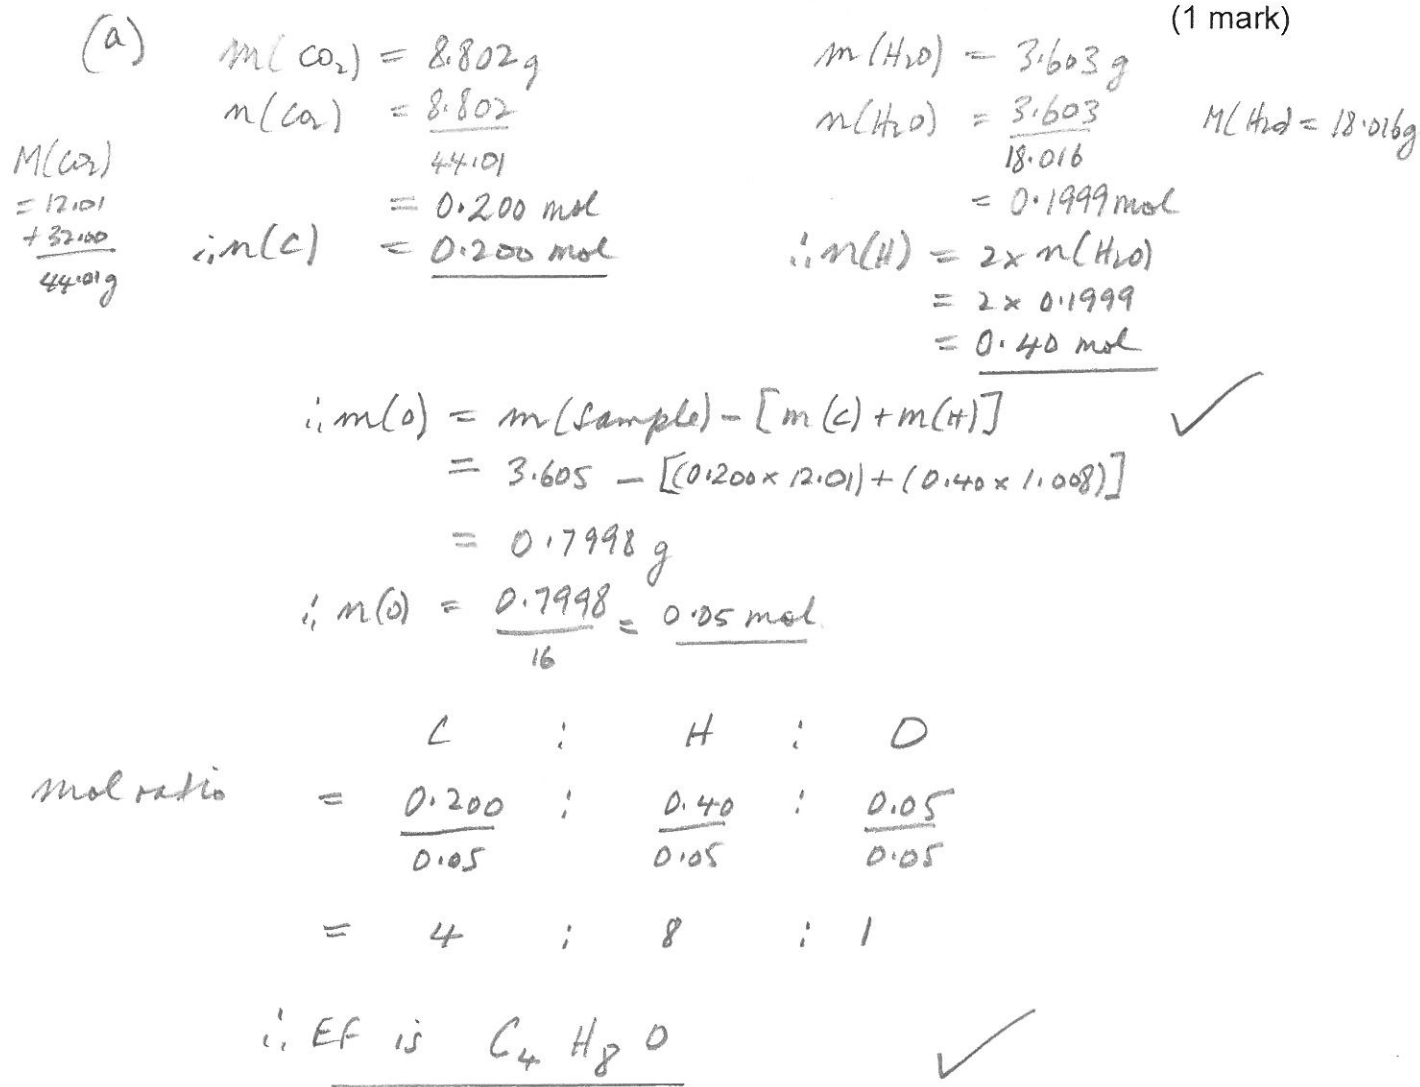 (1 mark)
(a) m(CO₂) = 8.802g
n(CO₂) = 8.802/44.01
= 0.200 mol
∴ n(C) = 0.200 mol
M(CO₂)
= 12.01
+ 32.00
44.01g
m(H₂O) = 3.603g
n(H₂O) = 3.603/18.016
M(H₂O) = 18.016g
= 0.1999 mol
∴ n(H) = 2 x n(H₂O)
= 2 x 0.1999
= 0.40 mol
∴ m(O) = m(Sample) - [m(C) + m(H)] ✓
= 3.605 - [(0.200 x 12.01) + (0.40 x 1.008)]
= 0.7998 g
∴ n(O) = 0.7998/16 = 0.05 mol
C : H : O
mol ratio = 0.200/0.05 : 0.40/0.05 : 0.05/0.05
= 4 : 8 : 1
∴ EF is C₄H₈O ✓